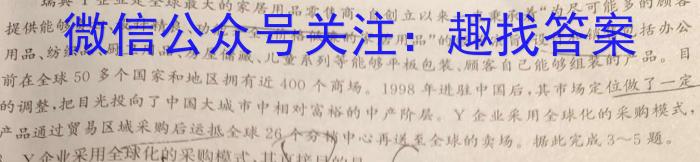 瑞典Y企业是全球最大的家居用品零售商,自创立以来一直秉承着“为尽可能多的顾客
提供能够
微信公众号关注：趣找答案
用品”的
包括办公
用品、纺织
儿童系列等能够平板包装、顾客自己能够组装的产品。目
前在全球50多个国家和地区拥有近400个商场。1998年进驻中国后,其市场定位做了一定
的调整,把目光投向了中国大城市中相对富裕的中产阶层。Y企业采用全球化的采购模式,
产品通过贸易区域采购后运抵全球26个分销中心再送至全球的卖场。据此完成3~5题。
Y企业采用全球化的采购模式,其直接目的是